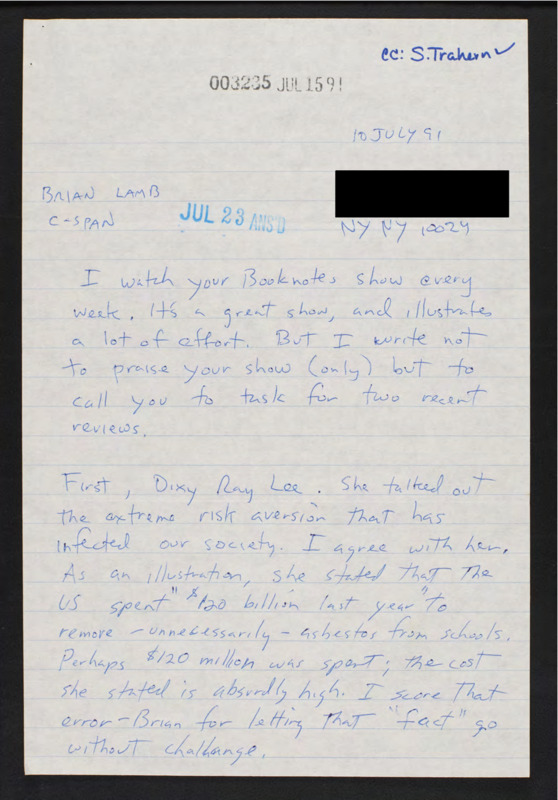 cc: S. Trahern ✓
003235 JUL 15 91
10 JULY 91
BRIAN LAMB
C-SPAN
JUL 23 ANS'D
NY NY 10024
I watch your Booknotes show every
week. It's a great show, and illustrates
a lot of effort. But I write not
to praise your show (only) but to
call you to task for two recent
reviews.
First, Dixy Ray Lee. She talked out
the extreme risk aversion that has
infected our society. I agree with her.
As an illustration, she stated that the
US spent "$120 billion last year" to
remove - unnecessarily - asbestos from schools.
Perhaps $120 million was spent; the cost
she stated is absurdly high. I score that
error - Brian for letting that "fact" go
without challange.